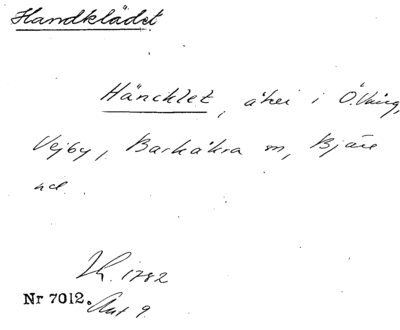 Handklädet
Häncklet, åker i Ö. Ving,
Vejby, Barkåkra m, Bjäre
hd.
Lh. 1782
Nr 7012. Ant 9.